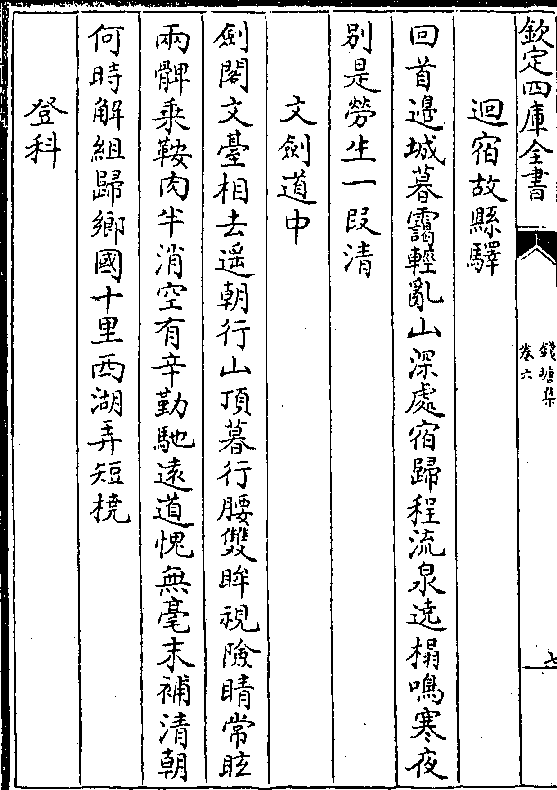 欽定四庫全書
錢塘集
卷六
七
迴宿故縣驛
回首邉城暮靄輕亂山深處宿歸程流泉遶榻鳴寒夜
别是勞生一叚清
文劍道中
劍閣文臺相去遥朝行山頂暮行腰雙眸視險睛常眩
兩髀乗鞍肉半消空有辛勤馳遠道愧無毫末補清朝
何時解組歸鄉國十里西湖弄短橈
登科